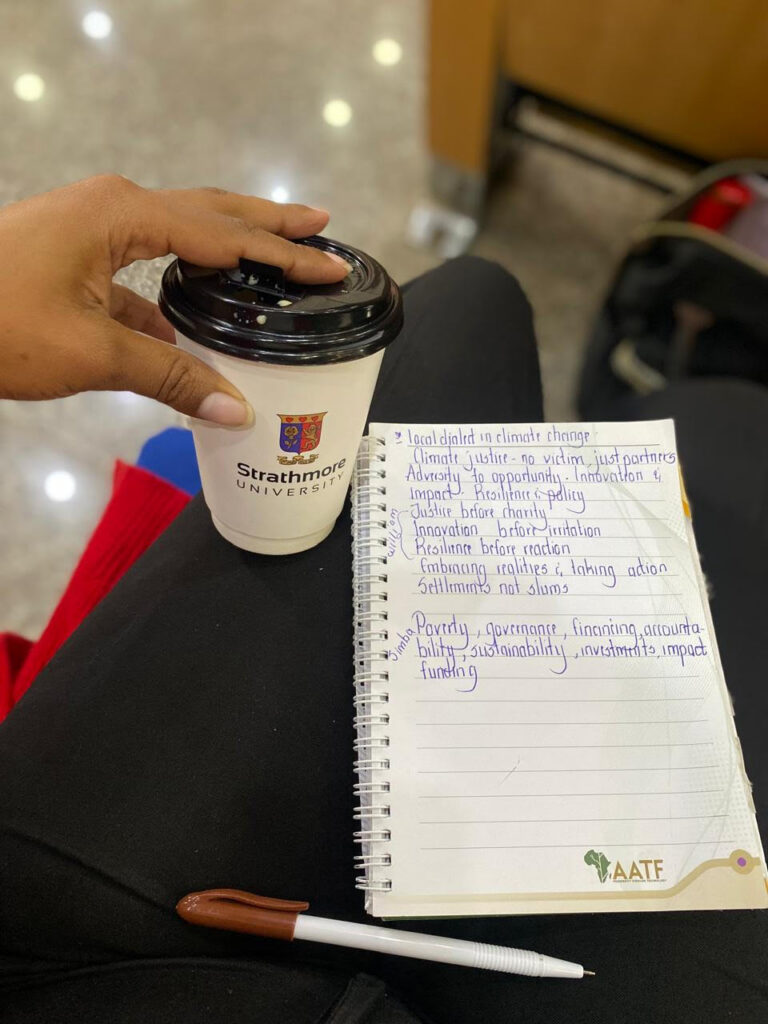 Strathmore
UNIVERSITY
Local dialect in climate change
Climate justice - no victim just partners
Adversity to opportunity - Innovation &
Impact - Resilience & policy
Justice before charity
Innovation before imitation
Resilience before reaction
William
Embracing realities & taking action
Settlements not slums
Simba
Poverty, governance, financing, accounta-
bility, sustainability, investments, impact
funding
AATF